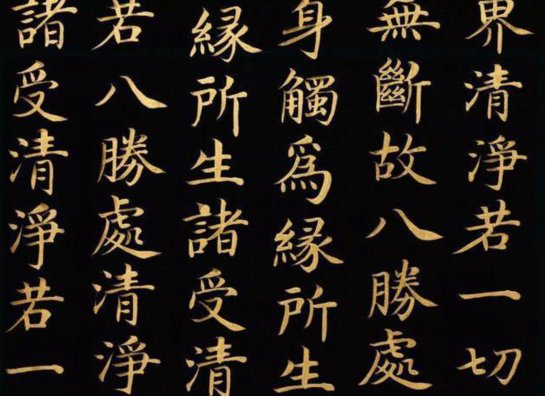 界清淨若一切
無斷故八勝處
身觸爲緣所生
緣所生諸受清
若八勝處清淨
諸受清淨若一